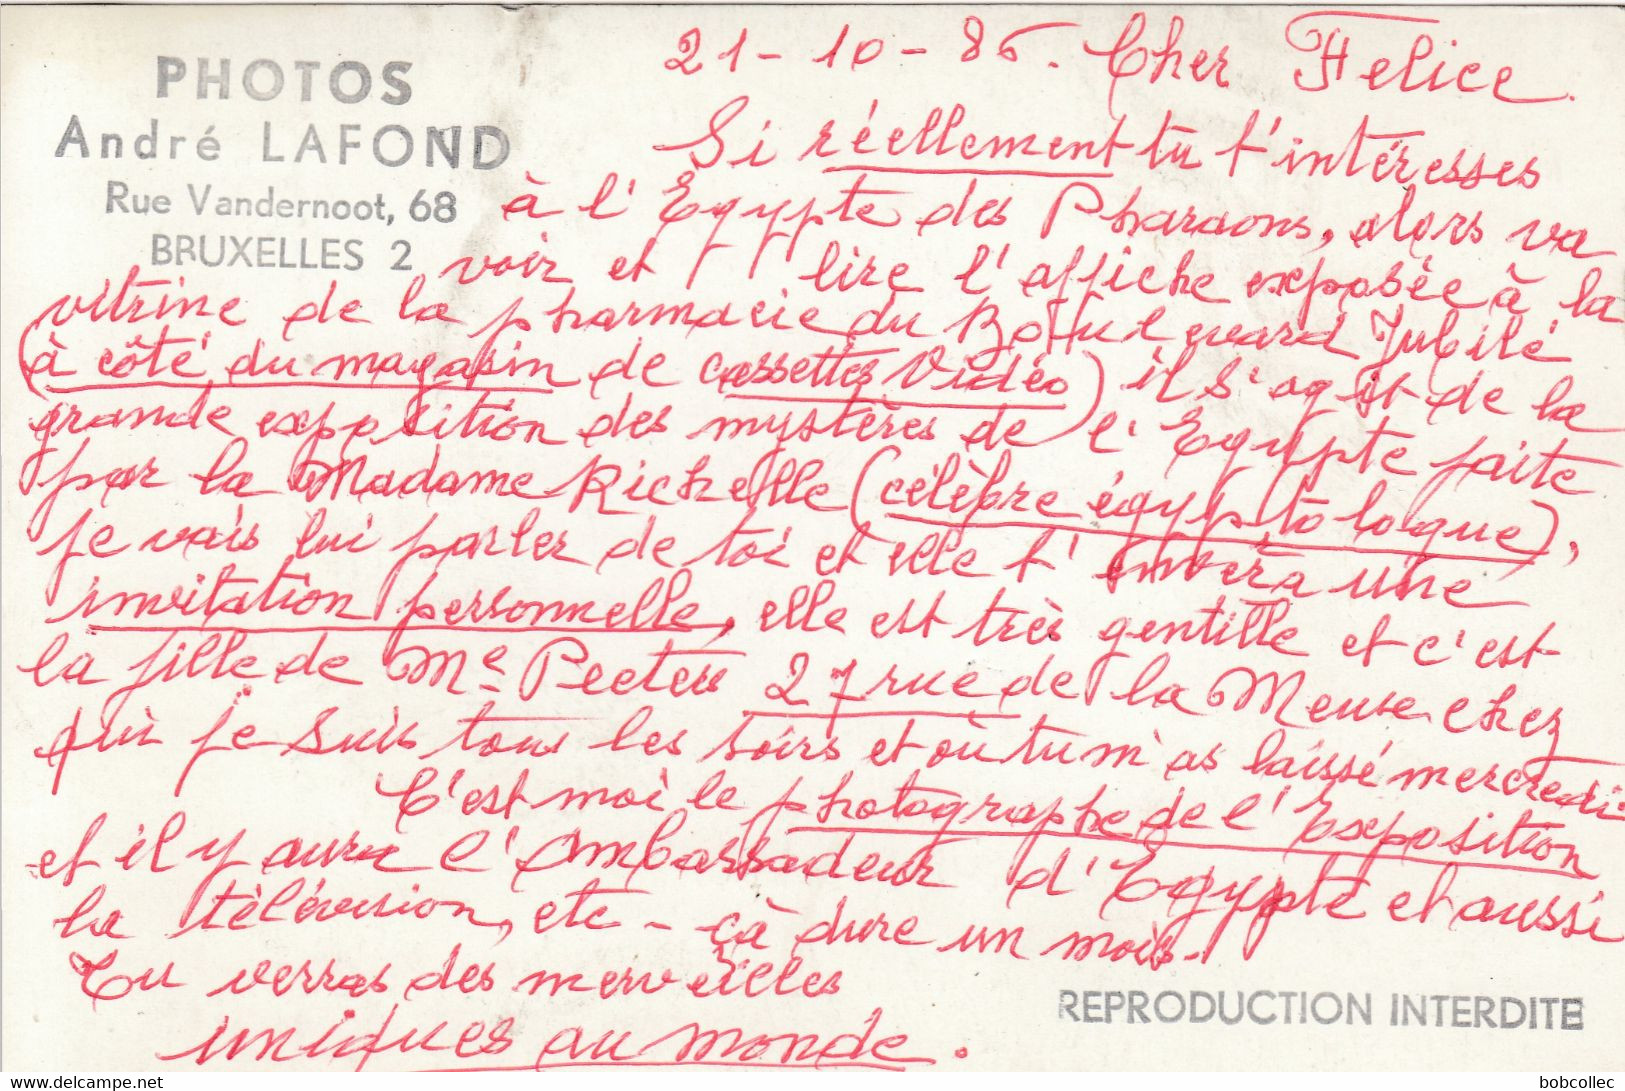 PHOTOS
André LAFOND
Rue Vandernoot, 68
BRUXELLES 2
21-10-86. Cher Felice.
Si réellement tu t'intéresses
à l'Egypte des Pharaons, alors va
voir et lire l'affiche exposée à la
vitrine de la pharmacie du Boulevard Jubilé
(à côté du magasin de cassettes Vidéo) il s'agit de la
grande exposition des mystères de l'Egypte faite
par la Madame Richelle (célèbre égyptologue),
je vais lui parler de toi et elle t'enverra une
invitation personnelle, elle est très gentille et c'est
la fille de Me Peeters 27 rue de la Meuse chez
qui je suis tous les soirs et où tu m'as laissé mercredi.
C'est moi le photographe de l'Exposition
et il y aura l'Ambassadeur d'Egypte et aussi
la télévision, etc - çà dure un mois.
Tu verras des merveilles
uniques au monde.
REPRODUCTION INTERDITE
www.delcampe.net
bobcollec